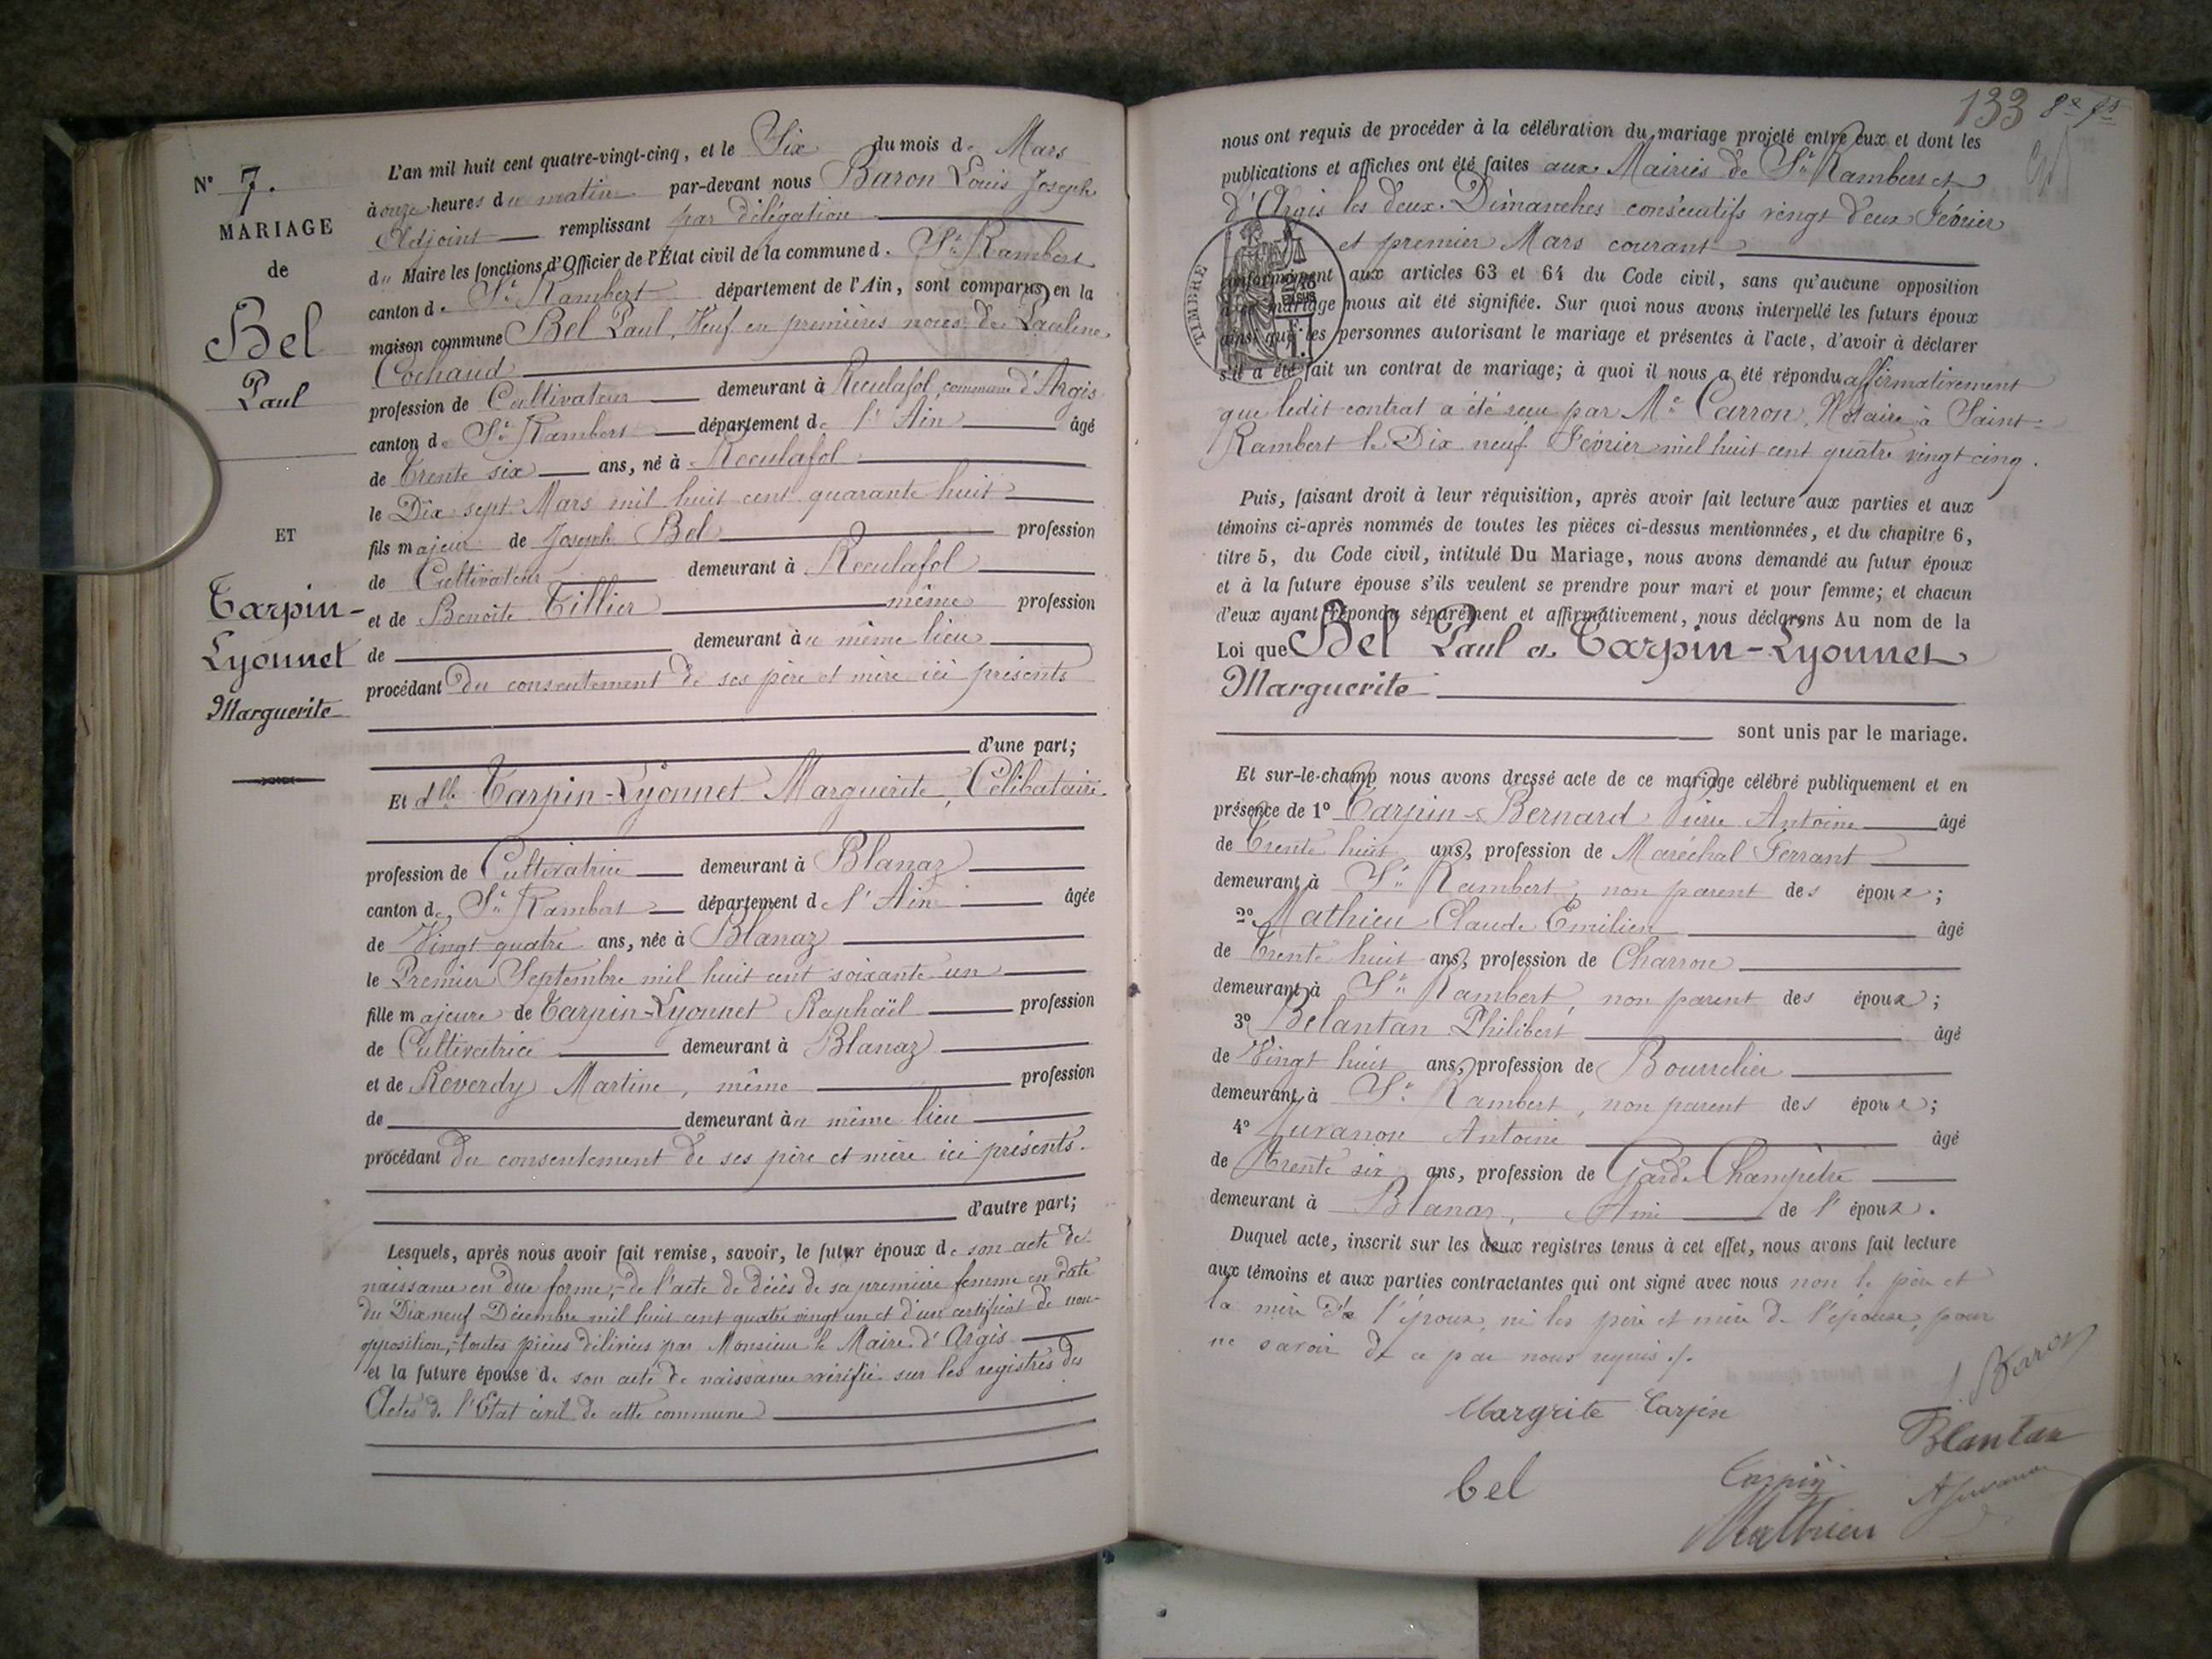 N° 7.
MARIAGE
de
Bel
Paul
ET
Tarpin-
Lyonnet
Marguerite
L'an mil huit cent quatre-vingt-cinq, et le Six du mois de Mars
à onze heures du matin par-devant nous Baron Louis Joseph
Adjoint remplissant par délégation
du Maire les fonctions d'Officier de l'État civil de la commune d. St Rambert
canton de St Rambert département de l'Ain, sont comparus en la
maison commune Bel Paul, Veuf en premières noces de Pauline
Cochaud
profession de Cultivateur demeurant à Reculafol, commune d'Argis
canton de St Rambert département de l'Ain âgé
de trente six ans, né à Reculafol
le Dix sept Mars mil huit cent quarante huit
fils majeur de Joseph Bel profession
de Cultivateur demeurant à Reculafol
et de Benoîte Tillier même profession
de demeurant à u même lieu
procédant du consentement de ses père et mère ici présents
d'une part;
Et dlle Tarpin-Lyonnet Marguerite, Célibataire
profession de Cultivatrice demeurant à Blanaz
canton de St Rambert département de l'Ain âgée
de Vingt quatre ans, née à Blanaz
le Premier Septembre mil huit cent soixante un
fille majeure de Tarpin-Lyonnet Raphaël profession
de Cultivatrice demeurant à Blanaz
et de Reverdy Martine, même profession
de demeurant à u même lieu
procédant du consentement de ses père et mère ici présents.
d'autre part;
Lesquels, après nous avoir fait remise, savoir, le futur époux de son acte de
naissance en due forme; de l'acte de décès de sa première femme en date
du Dix neuf Décembre mil huit cent quatre vingt un et d'un certificat de non-
opposition, toutes pièces délivrées par Monsieur le Maire d'Argis
et la future épouse de son acte de naissance vérifié sur les registres des
Actes de l'Etat civil de cette commune
133 8e
nous ont requis de procéder à la célébration du mariage projeté entre eux et dont les
publications et affiches ont été faites aux Mairies de St Rambert et
d'Argis les deux Dimanches consécutifs vingt deux Février
et premier Mars courant
TIMBRE
conformément aux articles 63 et 64 du Code civil, sans qu'aucune opposition
à ce mariage nous ait été signifiée. Sur quoi nous avons interpellé les futurs époux
ainsi que les personnes autorisant le mariage et présentes à l'acte, d'avoir à déclarer
s'il a été fait un contrat de mariage; à quoi il nous a été répondu affirmativement
que ledit contrat a été reçu par Me Carron, Notaire à Saint-
Rambert le Dix neuf Février mil huit cent quatre vingt cinq.
Puis, faisant droit à leur réquisition, après avoir fait lecture aux parties et aux
témoins ci-après nommés de toutes les pièces ci-dessus mentionnées, et du chapitre 6,
titre 5, du Code civil, intitulé Du Mariage, nous avons demandé au futur époux
et à la future épouse s'ils veulent se prendre pour mari et pour femme; et chacun
d'eux ayant répondu séparément et affirmativement, nous déclarons Au nom de la
Loi que Bel Paul et Tarpin-Lyonnet
Marguerite
sont unis par le mariage.
Et sur-le-champ nous avons dressé acte de ce mariage célébré publiquement et en
présence de 1° Tarpin-Bernard Pierre Antoine âgé
de trente huit ans, profession de Maréchal Ferrant
demeurant à St Rambert, non parent des époux;
2° Mathieu Claude Emilien âgé
de trente huit ans, profession de Charron
demeurant à St Rambert, non parent des époux;
3° Belantan Philibert âgé
de Vingt huit ans, profession de Bourrelier
demeurant à St Rambert, non parent des époux;
4° Juvanon Antoine âgé
de trente six ans, profession de Garde Champêtre
demeurant à Blanaz, Ami de l'époux.
Duquel acte, inscrit sur les deux registres tenus à cet effet, nous avons fait lecture
aux témoins et aux parties contractantes qui ont signé avec nous non le père et
la mère de l'époux, ni les père et mère de l'épouse, pour
ne savoir de ce par nous requis./.
Margrite Tarpin
J. Baron
Blantan
bel
Tarpin
A Juvanon
Mathieu